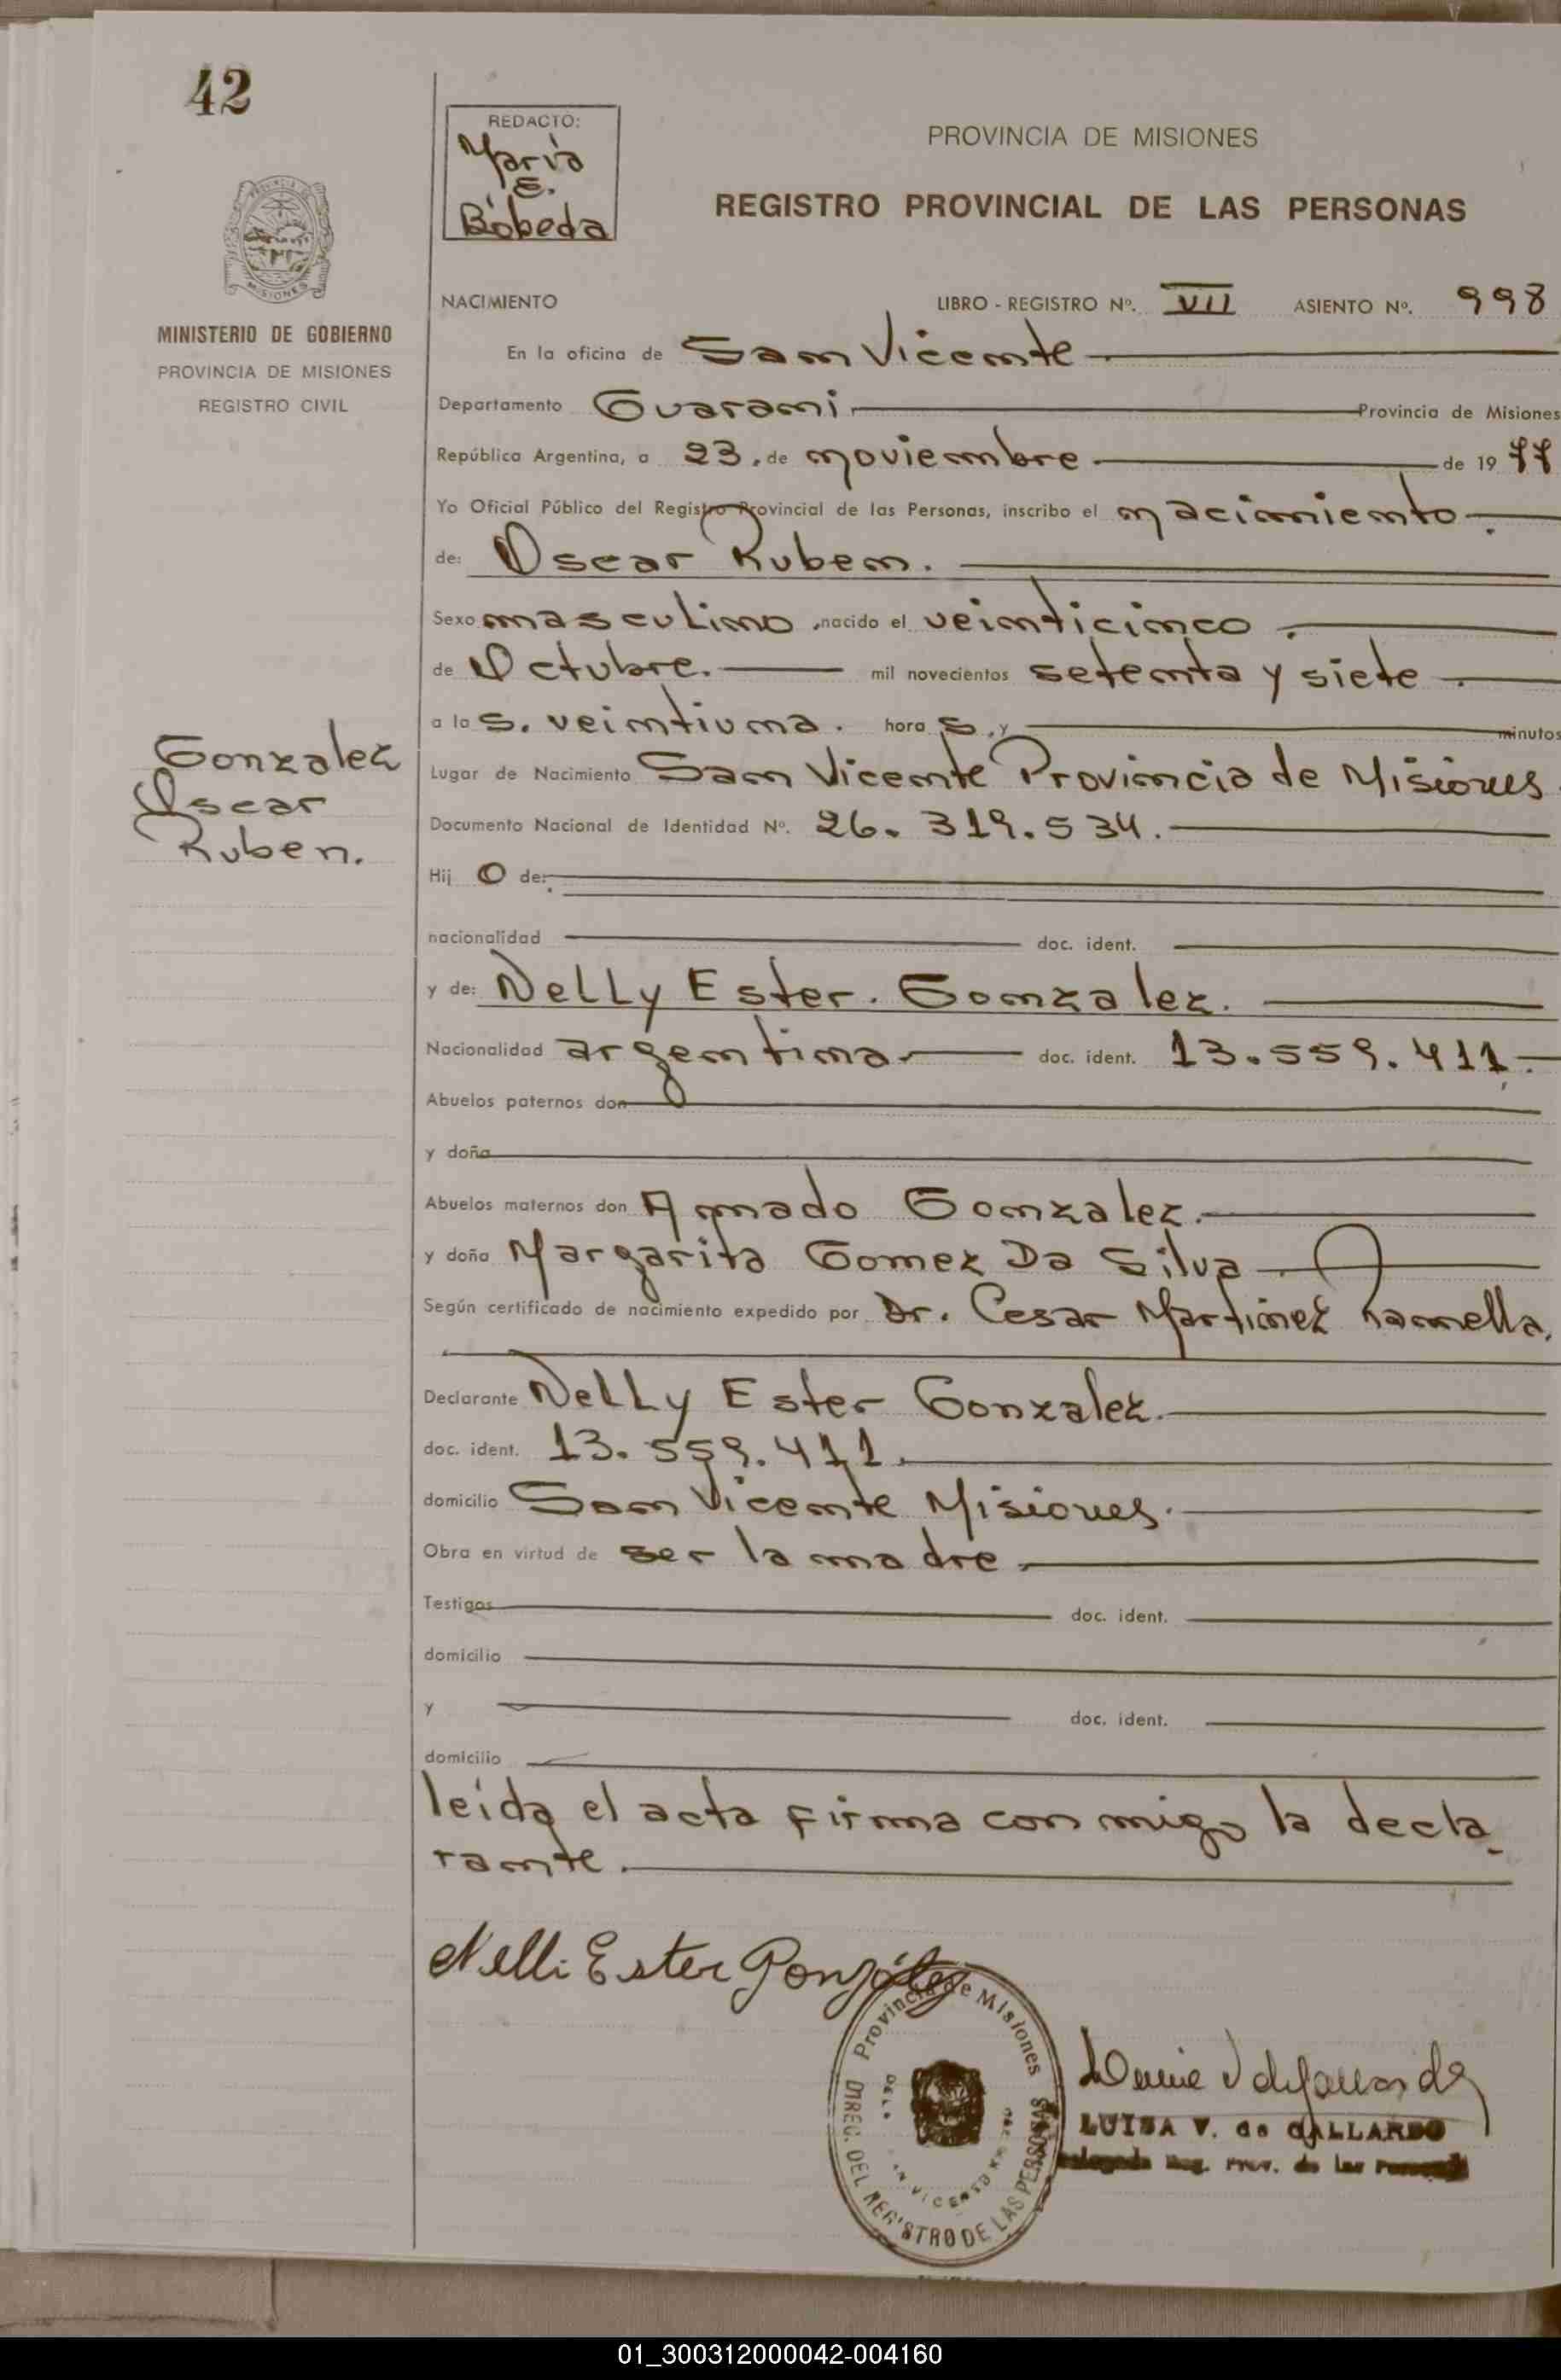 42
REDACTO:
Maria
E.
Bóbeda
PROVINCIA DE MISIONES
REGISTRO PROVINCIAL DE LAS PERSONAS
MISIONES
MINISTERIO DE GOBIERNO
PROVINCIA DE MISIONES
REGISTRO CIVIL
NACIMIENTO LIBRO - REGISTRO Nº. VII ASIENTO Nº. 998
En la oficina de San Vicente
Departamento Guarani Provincia de Misiones
República Argentina, a 23. de noviembre de 19 77
Yo Oficial Público del Registro Provincial de las Personas, inscribo el nacimiento.
de: Oscar Ruben.
Sexo masculino, nacido el veinticinco.
de Octubre. mil novecientos setenta y siete.
a la s. veintiuna. hora s. y minutos
Gonzalez
Oscar
Ruben.
Lugar de Nacimiento San Vicente Provincia de Misiones.
Documento Nacional de Identidad Nº. 26. 319. 534.
Hij o de:
nacionalidad doc. ident.
y de: Nelly Ester. Gonzalez.
Nacionalidad argentina. doc. ident. 13.559.411.
Abuelos paternos don
y doña
Abuelos maternos don Amado Gonzalez.
y doña Margarita Gomez Da Silva.
Según certificado de nacimiento expedido por Dr. Cesar Martinez Ramella.
Declarante Nelly Ester Gonzalez.
doc. ident. 13.559.411.
domicilio San Vicente Misiones.
Obra en virtud de ser la madre.
Testigos doc. ident.
domicilio
y doc. ident.
domicilio
leida el acta firma con migo la decla-
rante.
Nelli Ester González
Provincia de Misiones
DIREC. DEL REGISTRO DE LAS PERSONAS
LUISA V. de GALLARDO
Delegada Reg. Prov. de las Personas
01_300312000042-004160